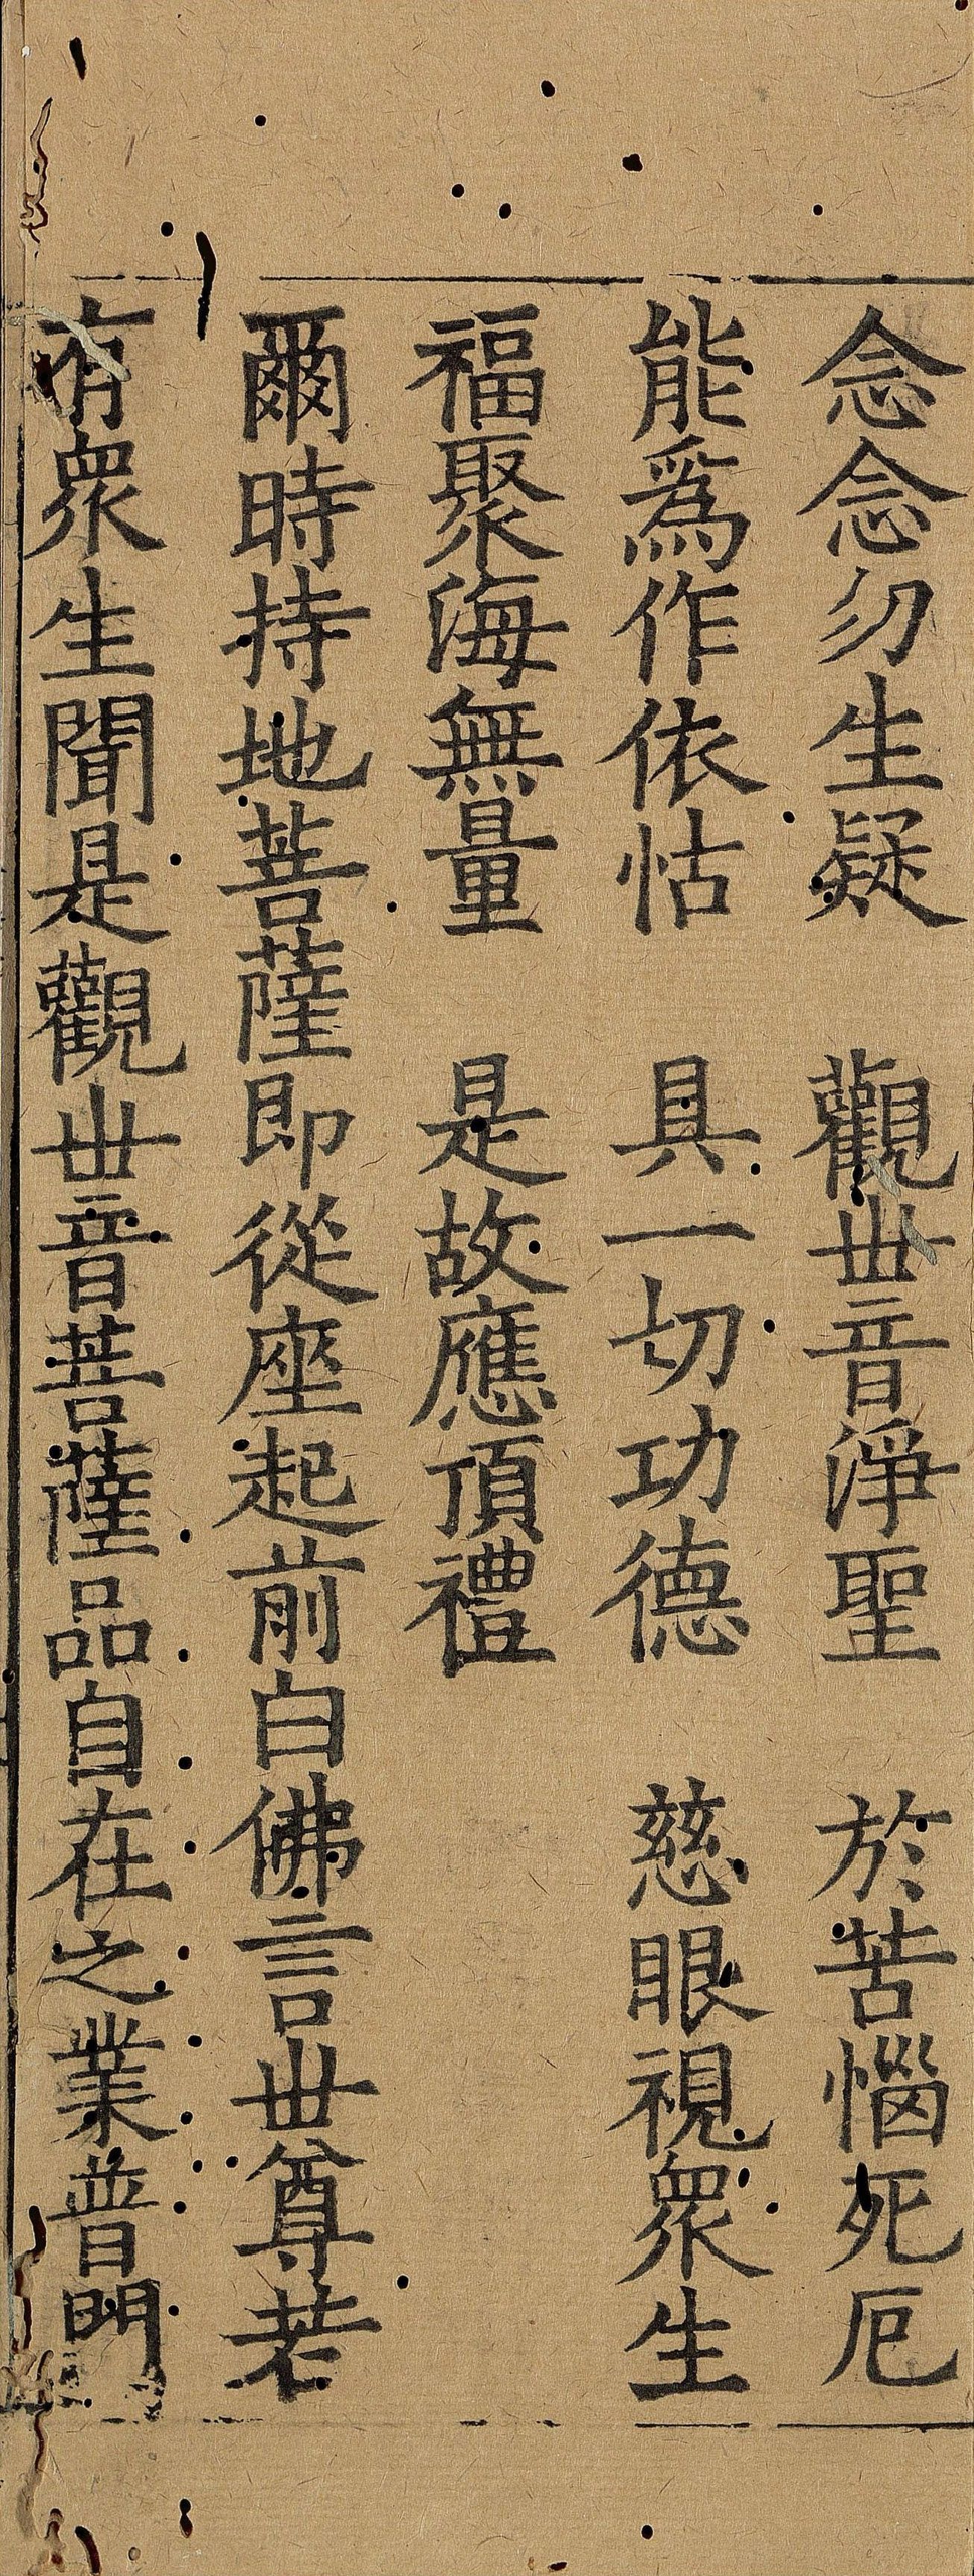 念念勿生疑　觀世音淨聖　於苦惱死厄
能爲作依怙　具一切功德　慈眼視衆生
福聚海無量　是故應頂禮
爾時持地菩薩即從座起前白佛言世尊若
有衆生聞是觀世音菩薩品自在之業普門